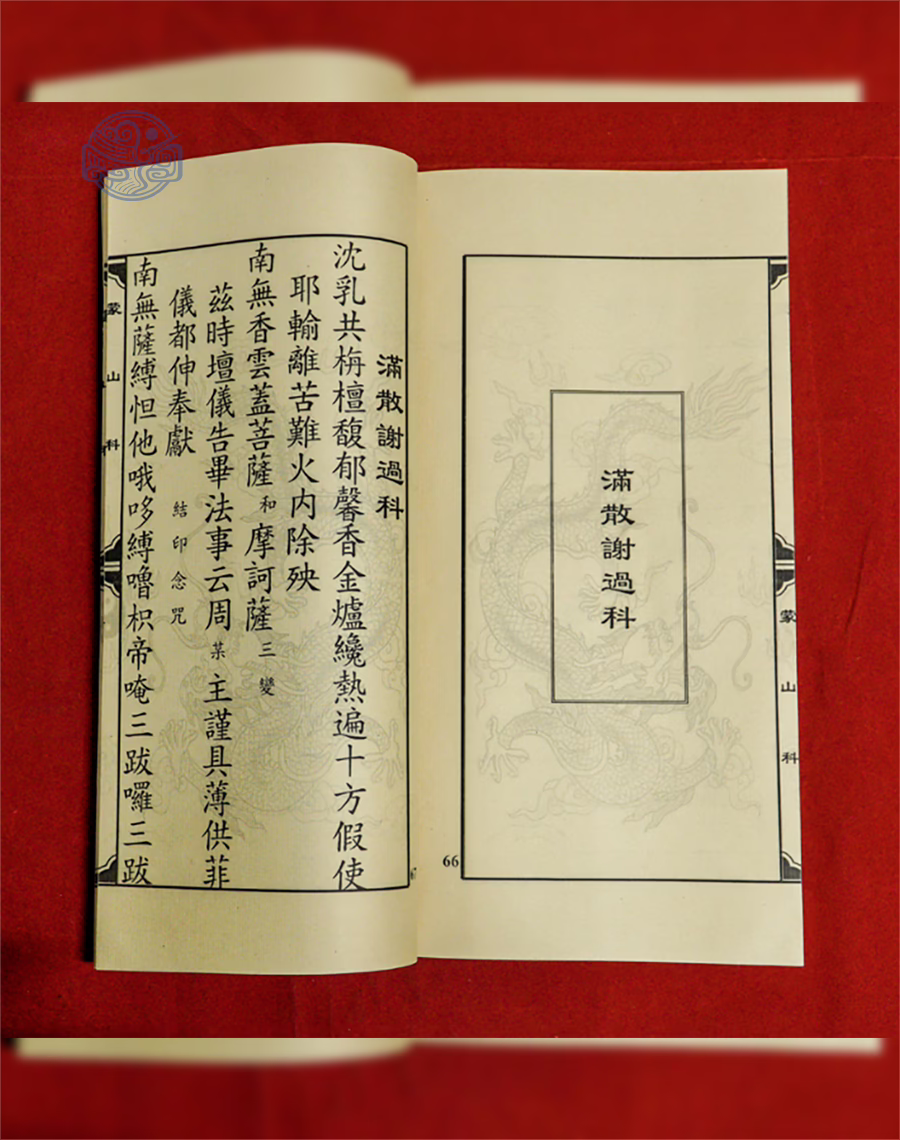 滿散謝過科
蒙山科
66
滿散謝過科
沈乳共栴檀馥郁馨香金爐纔熱遍十方假使
耶輸離苦難火内除殃
南無香雲蓋菩薩 和 摩訶薩 三變
茲時壇儀告畢法事云周 某 主謹具薄供菲
儀都伸奉獻 結印念咒
南無薩縛怛他哦哆縛嚕枳帝唵三跋囉三跋
蒙山科